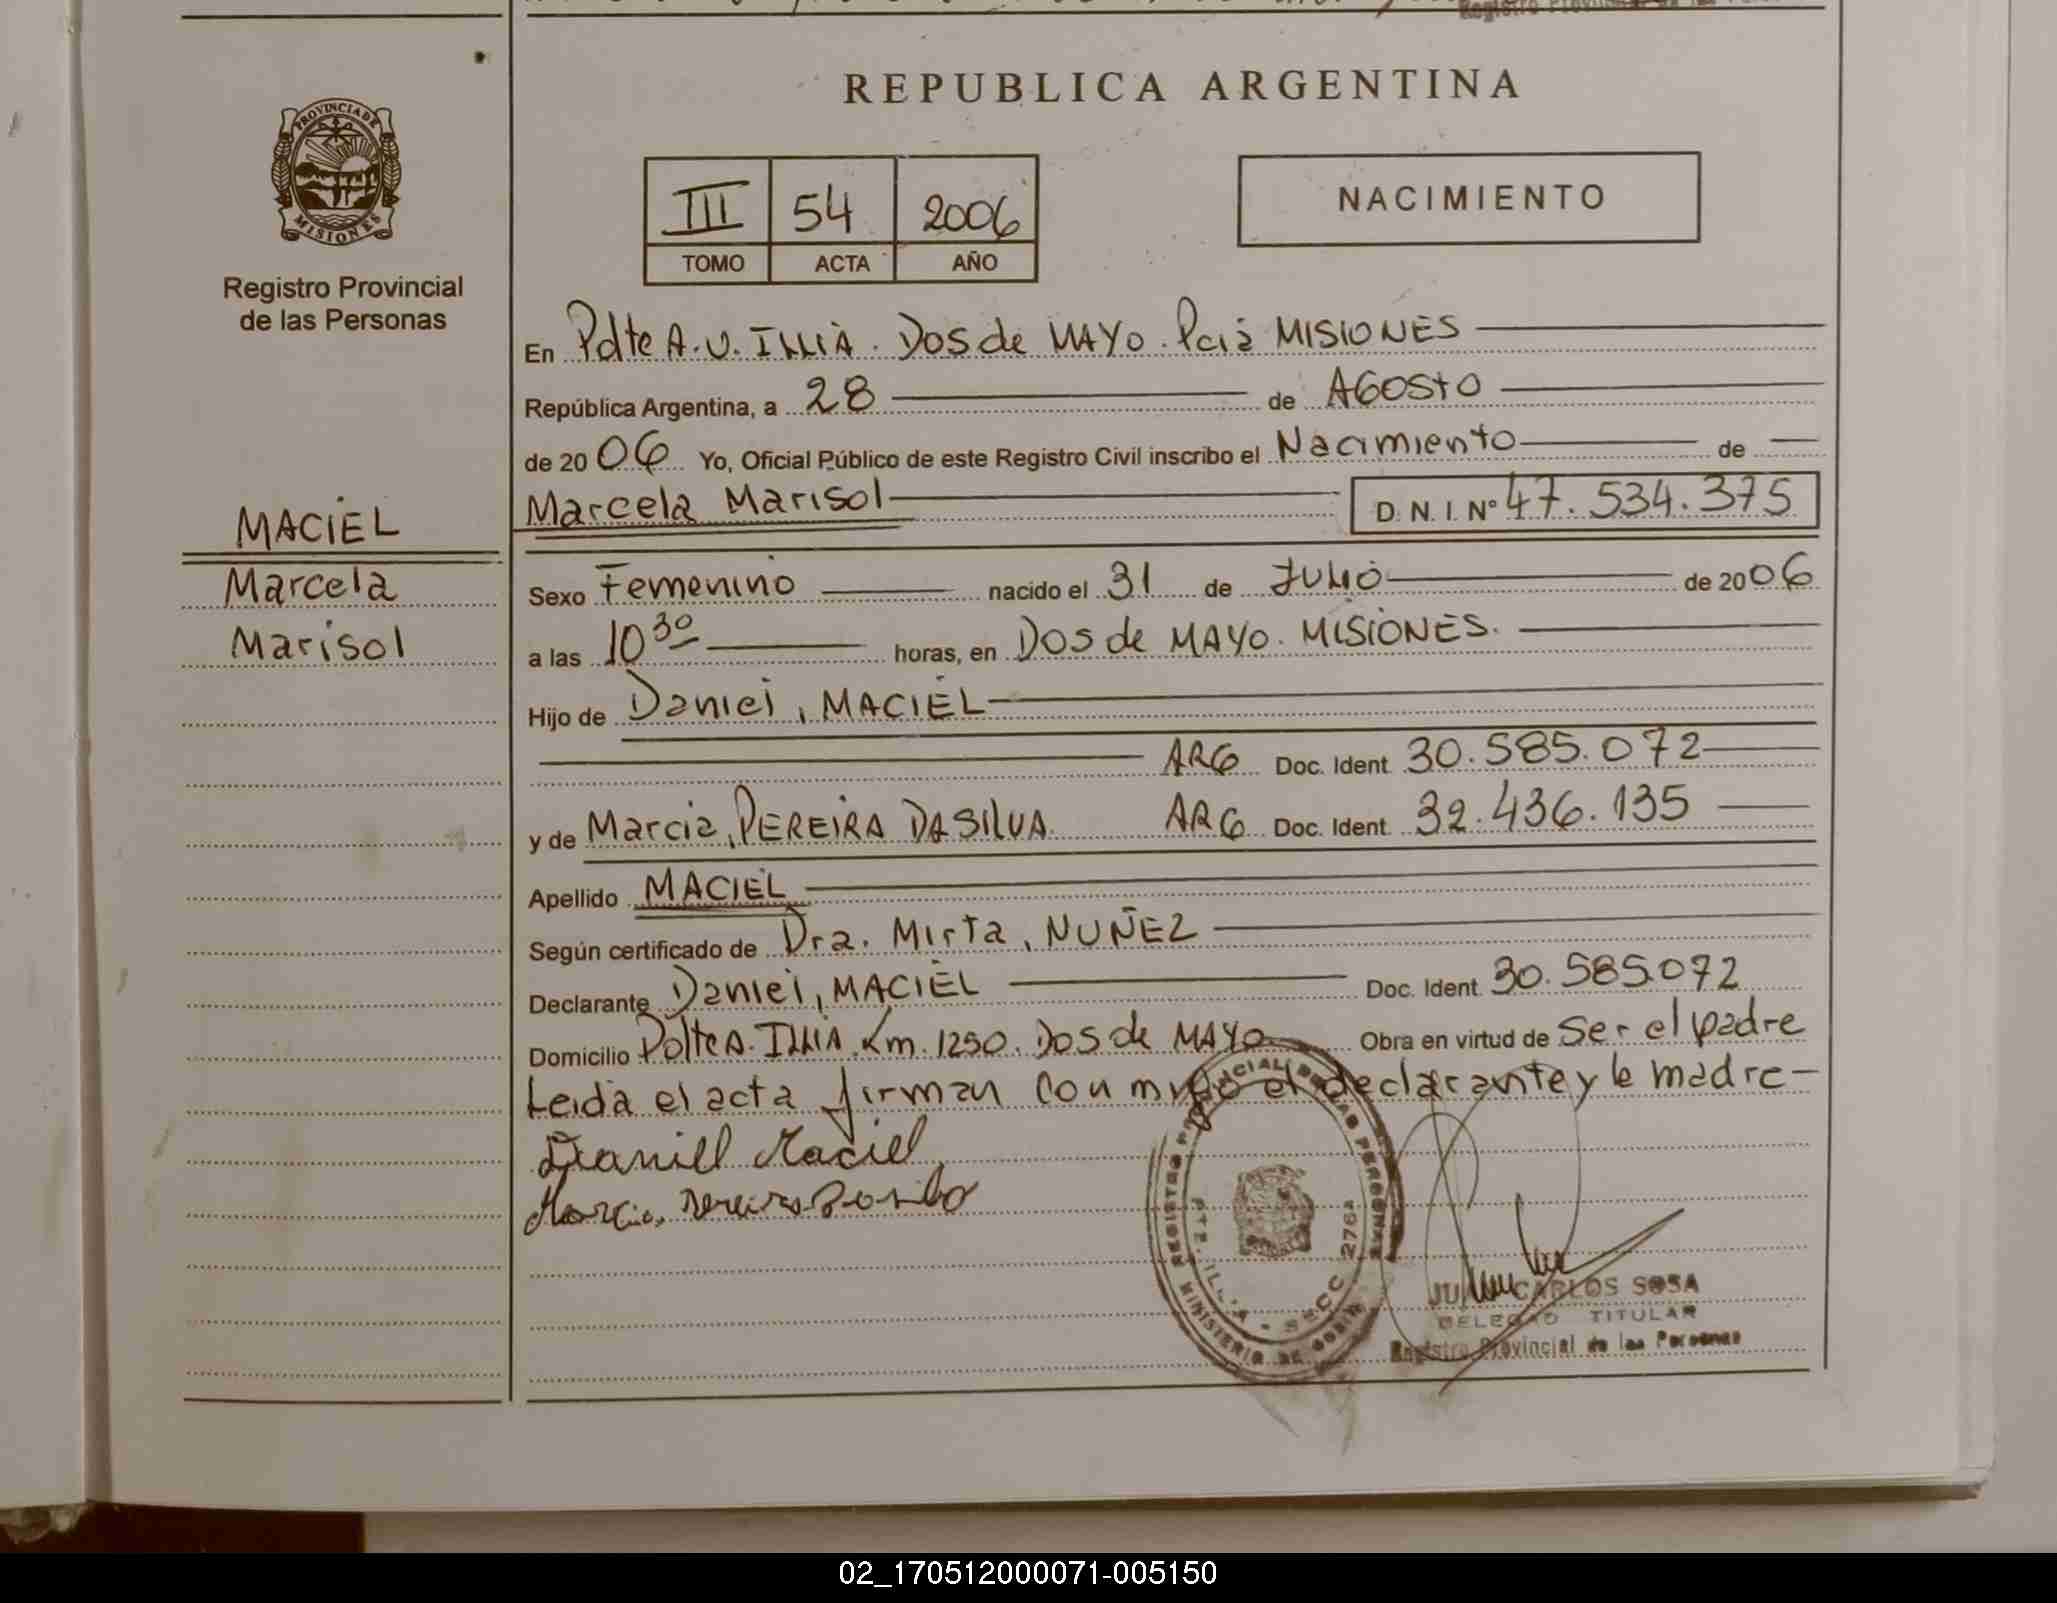 REPUBLICA ARGENTINA
PROVINCIA DE
MISIONES
Registro Provincial
de las Personas
III 54 2006
TOMO ACTA AÑO
NACIMIENTO
En Pdte A.U. ILLIA. Dos de MAYO. Pcia MISIONES
República Argentina, a 28 de AGOSTO
de 2006 Yo, Oficial Público de este Registro Civil inscribo el Nacimiento de
Marcela Marisol D.N.I. Nº 47.534.375
MACIEL
Marcela
Marisol
Sexo Femenino nacido el 31 de JULIO de 2006
a las 10 30 horas, en Dos de MAYO. MISIONES.
Hijo de Daniel, MACIEL
ARG Doc. Ident. 30.585.072
y de Marcia, PEREIRA DA SILVA. ARG Doc. Ident. 32.436.135
Apellido MACIEL
Según certificado de Dra. Mirta, NUÑEZ
Declarante Daniel, MACIEL Doc. Ident. 30.585.072
Domicilio Pdte A. ILLIA. Km. 1250. Dos de MAYO Obra en virtud de Ser el padre
Leida el acta firman con migo el declarante y la madre
Daniel Maciel
REGISTRO PROVINCIAL DE LAS PERSONAS
MINISTERIO DE
PTE. ILLIA - SECC 276a
CARLOS SOSA
DELEGADO TITULAR
Registro Provincial de las Personas
02_170512000071-005150